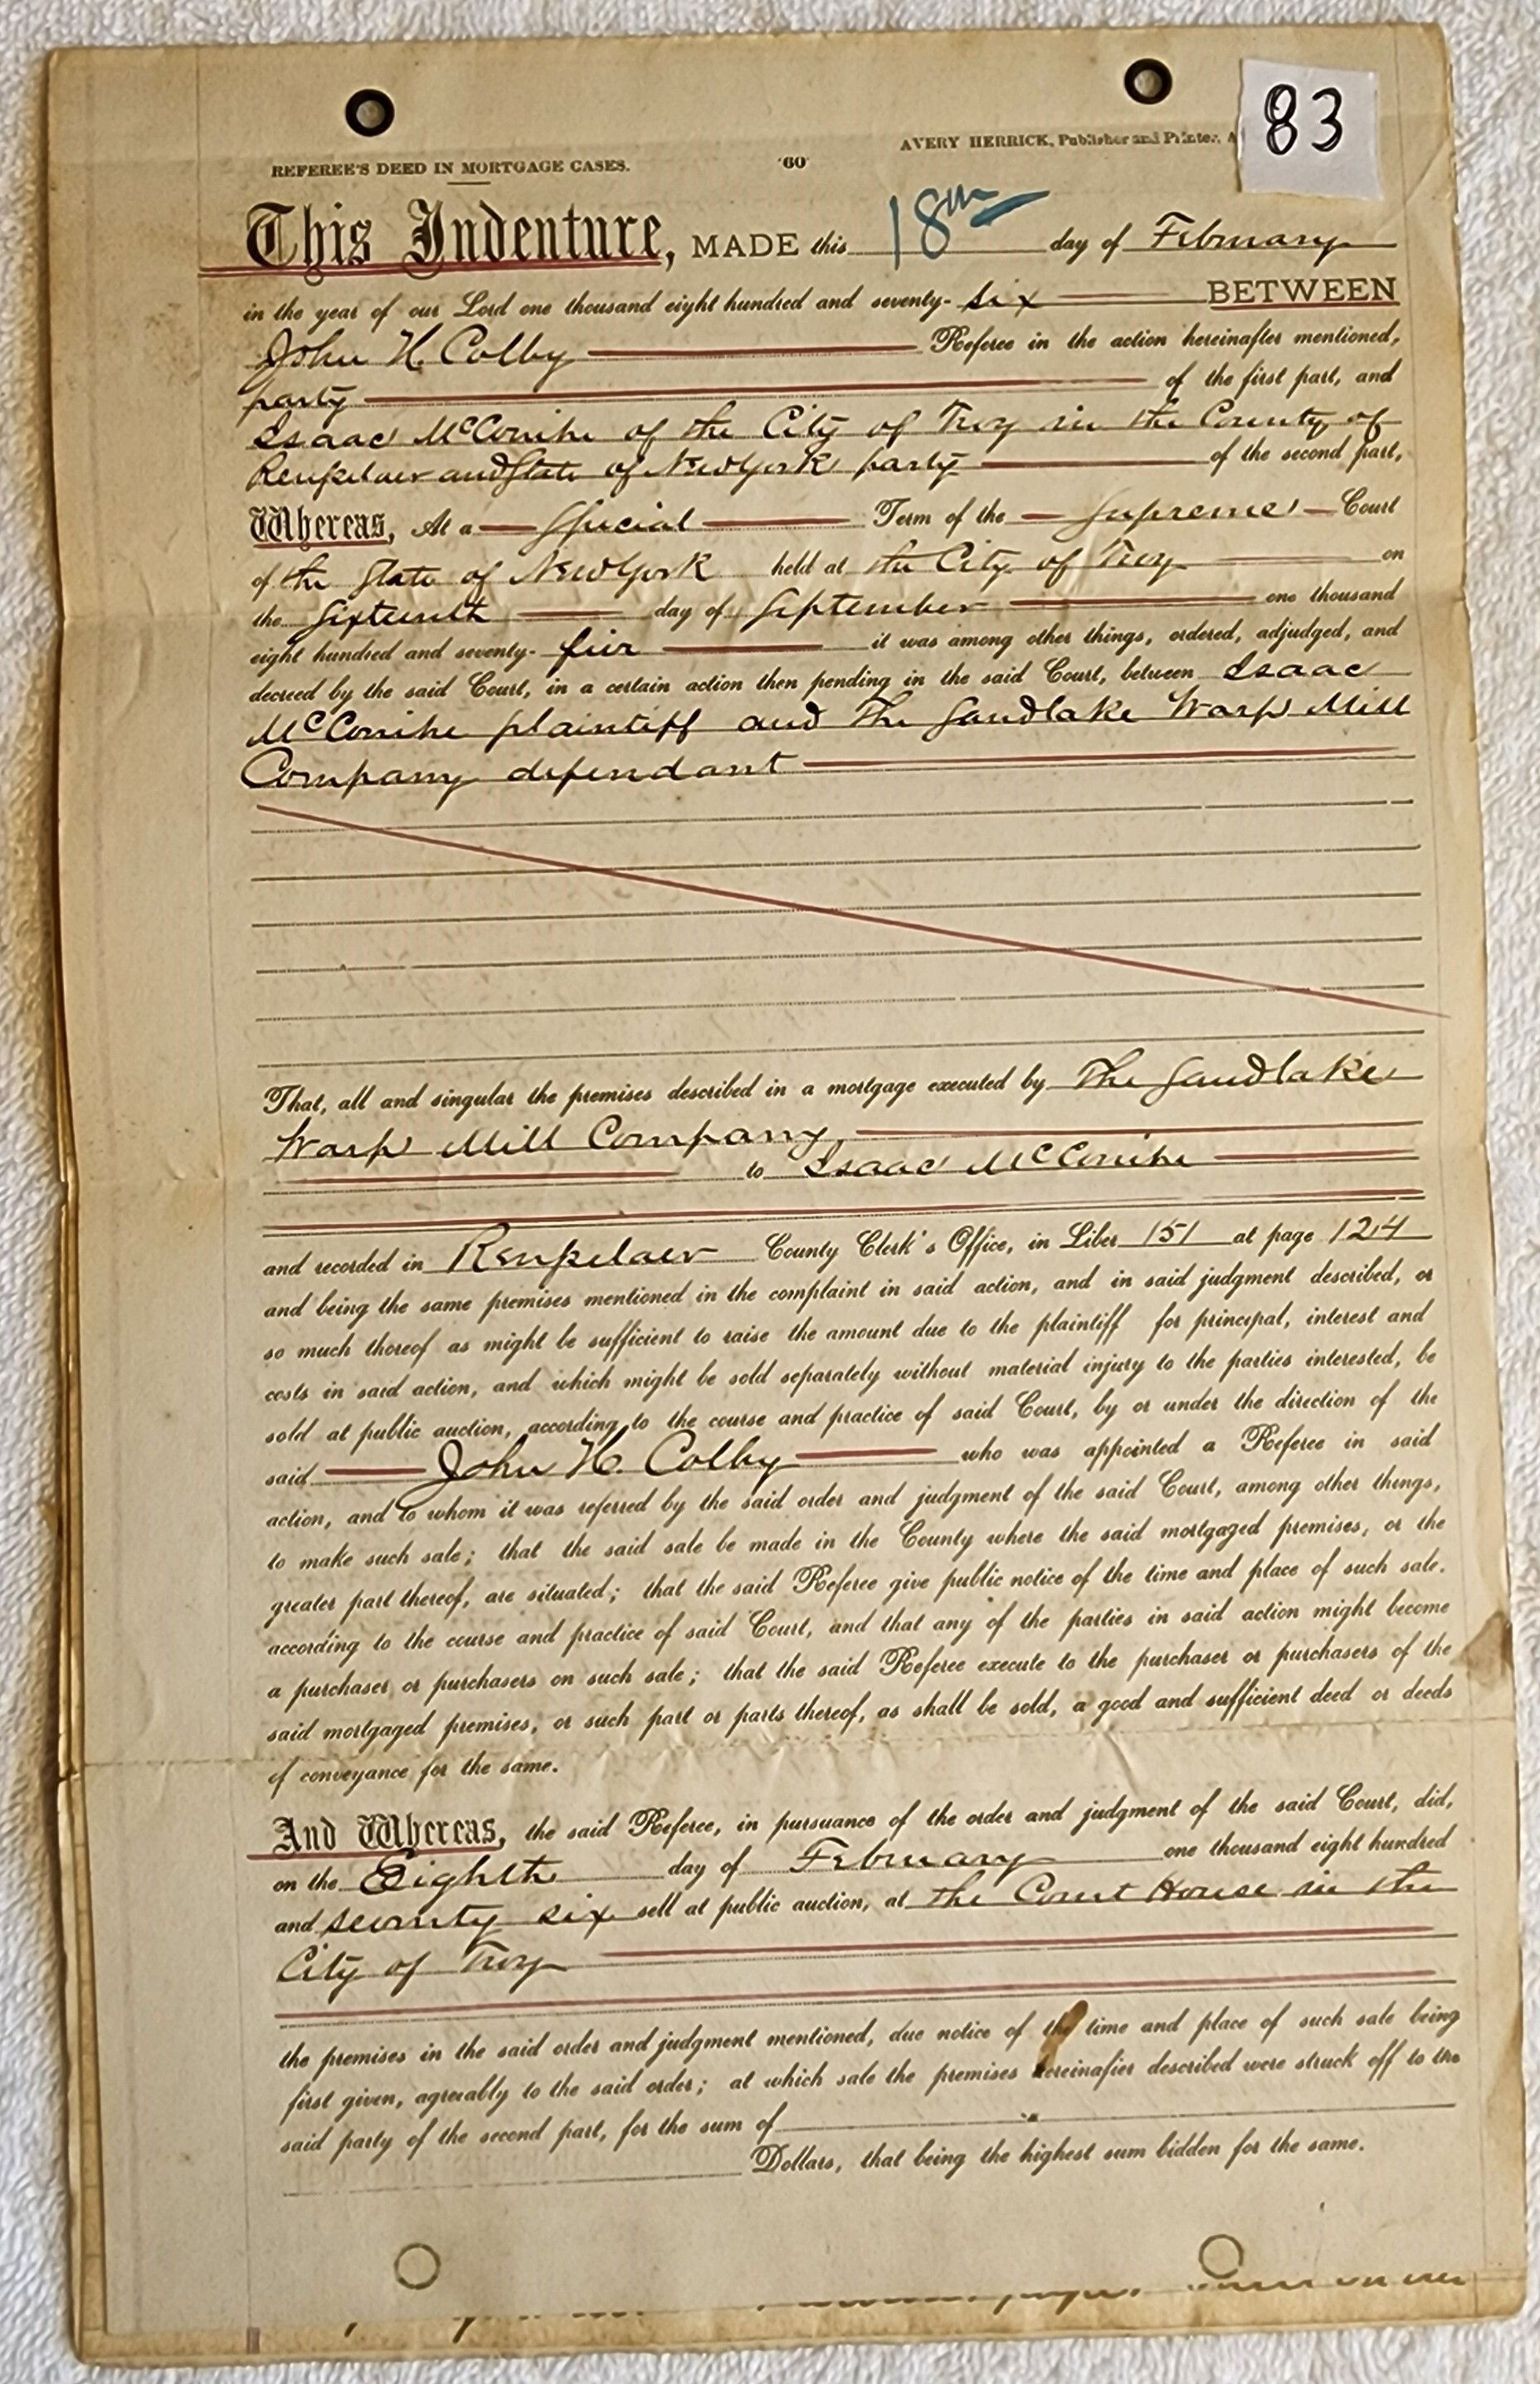 83
AVERY HERRICK, Publisher and Printer, A
REFEREE'S DEED IN MORTGAGE CASES. 60
This Indenture, MADE this 18th day of February
in the year of our Lord one thousand eight hundred and seventy- six BETWEEN
John H. Colby Referee in the action hereinafter mentioned,
party of the first part, and
Isaac McConihe of the City of Troy in the County of
Rensselaer and State of New York party of the second part,
Whereas, At a Special Term of the Supreme Court
of the State of New York held at the City of Troy on
the Sixteenth day of September one thousand
eight hundred and seventy- five it was among other things, ordered, adjudged, and
decreed by the said Court, in a certain action then pending in the said Court, between Isaac
McConihe plaintiff and The Sandlake Warp Mill
Company defendant
That, all and singular the premises described in a mortgage executed by The Sandlake
Warp Mill Company
to Isaac McConihe
and recorded in Rensselaer County Clerk's Office, in Liber 151 at page 124
and being the same premises mentioned in the complaint in said action, and in said judgment described, or
so much thereof as might be sufficient to raise the amount due to the plaintiff for principal, interest and
costs in said action, and which might be sold separately without material injury to the parties interested, be
sold at public auction, according to the course and practice of said Court, by or under the direction of the
said John H. Colby who was appointed a Referee in said
action, and to whom it was referred by the said order and judgment of the said Court, among other things,
to make such sale; that the said sale be made in the County where the said mortgaged premises, or the
greater part thereof, are situated; that the said Referee give public notice of the time and place of such sale.
according to the course and practice of said Court, and that any of the parties in said action might become
a purchaser or purchasers on such sale; that the said Referee execute to the purchaser or purchasers of the
said mortgaged premises, or such part or parts thereof, as shall be sold, a good and sufficient deed or deeds
of conveyance for the same.
And Whereas, the said Referee, in pursuance of the order and judgment of the said Court, did,
on the Eighth day of February one thousand eight hundred
and seventy six sell at public auction, at the Court House in the
City of Troy
the premises in the said order and judgment mentioned, due notice of the time and place of such sale being
first given, agreeably to the said order; at which sale the premises hereinafter described were struck off to the
said party of the second part, for the sum of
Dollars, that being the highest sum bidden for the same.